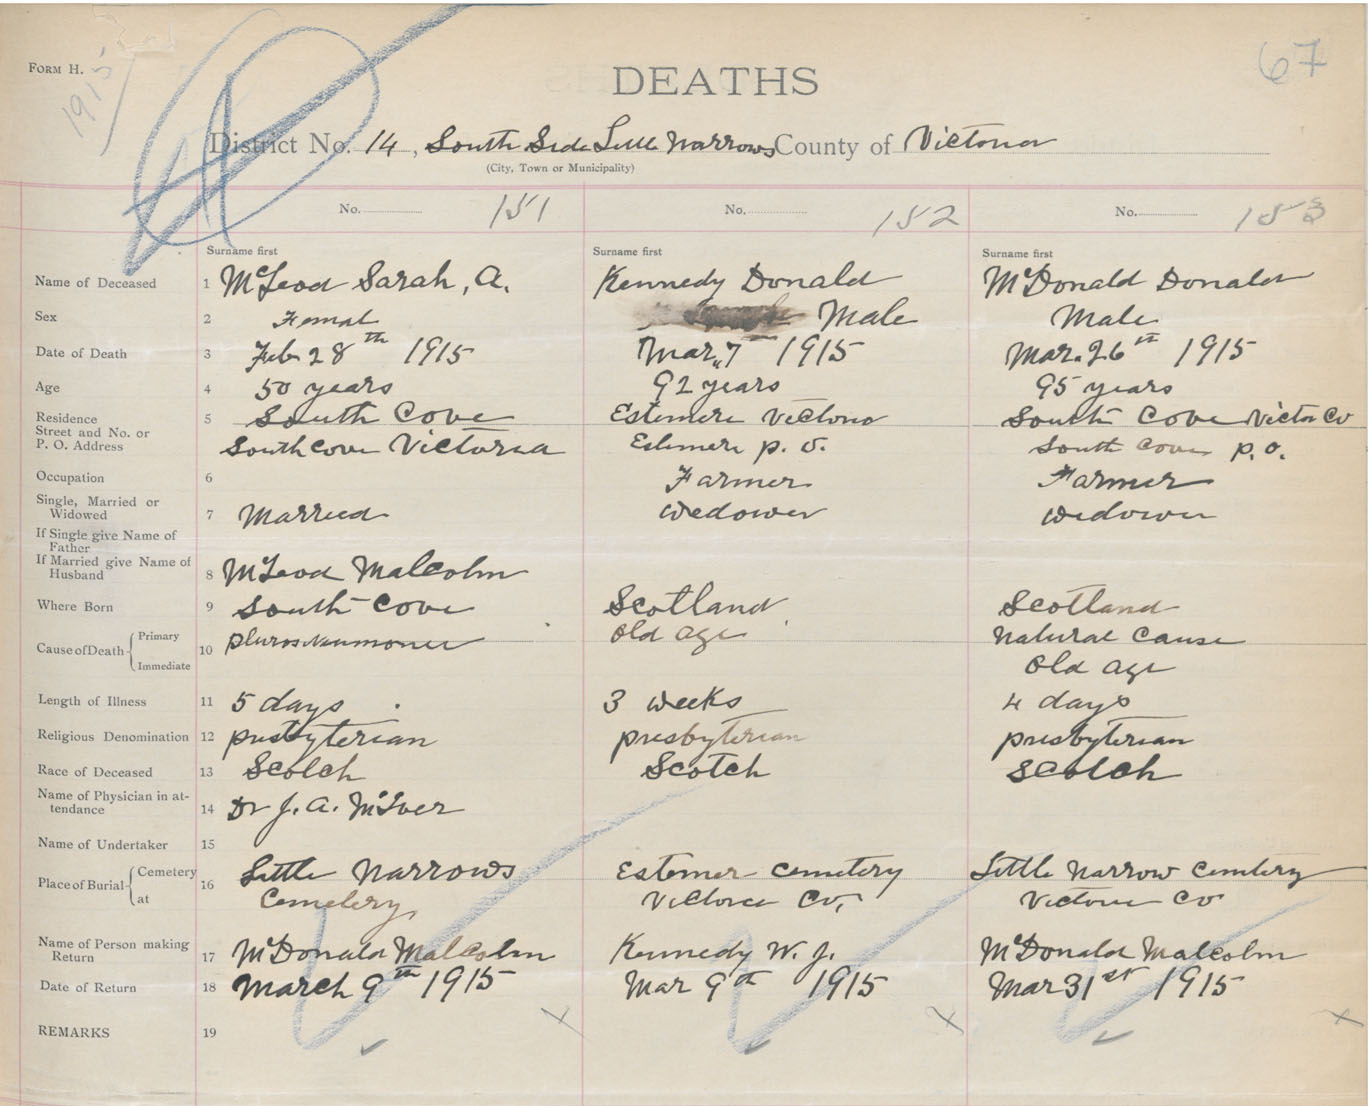 FORM H.
1915
DEATHS
67
District No. 14, South Side Little Narrows County of Victoria
(City, Town or Municipality)
No. 151 No. 152 No. 153
Surname first Surname first Surname first
Name of Deceased 1 McLeod Sarah, A. Kennedy Donald McDonald Donald
Sex 2 Femal Male Male
Date of Death 3 Feb 28th 1915 Mar. 7th 1915 Mar. 26th 1915
Age 4 50 years 92 years 95 years
Residence 5 South Cove Estemere Victoria South Cove Victor Co
Street and No. or
P. O. Address South Cove Victoria Estemere P. O. South Cove P. O.
Occupation 6 Farmer Farmer
Single, Married or
Widowed 7 Married Wedower Wedower
If Single give Name of
Father
If Married give Name of
Husband 8 McLeod Malcolm
Where Born 9 South Cove Scotland Scotland
Cause of Death Primary 10 Old age Natural Cause
Immediate Old age
Length of Illness 11 5 days 3 weeks 4 days
Religious Denomination 12 Presbyterian Presbyterian Presbyterian
Race of Deceased 13 Scotch Scotch Scotch
Name of Physician in at-
tendance 14 Dr J. A. McIver
Name of Undertaker 15
Place of Burial Cemetery 16 Little Narrows Estemer Cemetery Little Narrow Cemetery
at Cemetery Victoria Co, Victoria Co
Name of Person making
Return 17 McDonald Malcolm Kennedy W. J. McDonald Malcolm
Date of Return 18 March 9th 1915 Mar 9th 1915 Mar 31st 1915
REMARKS 19